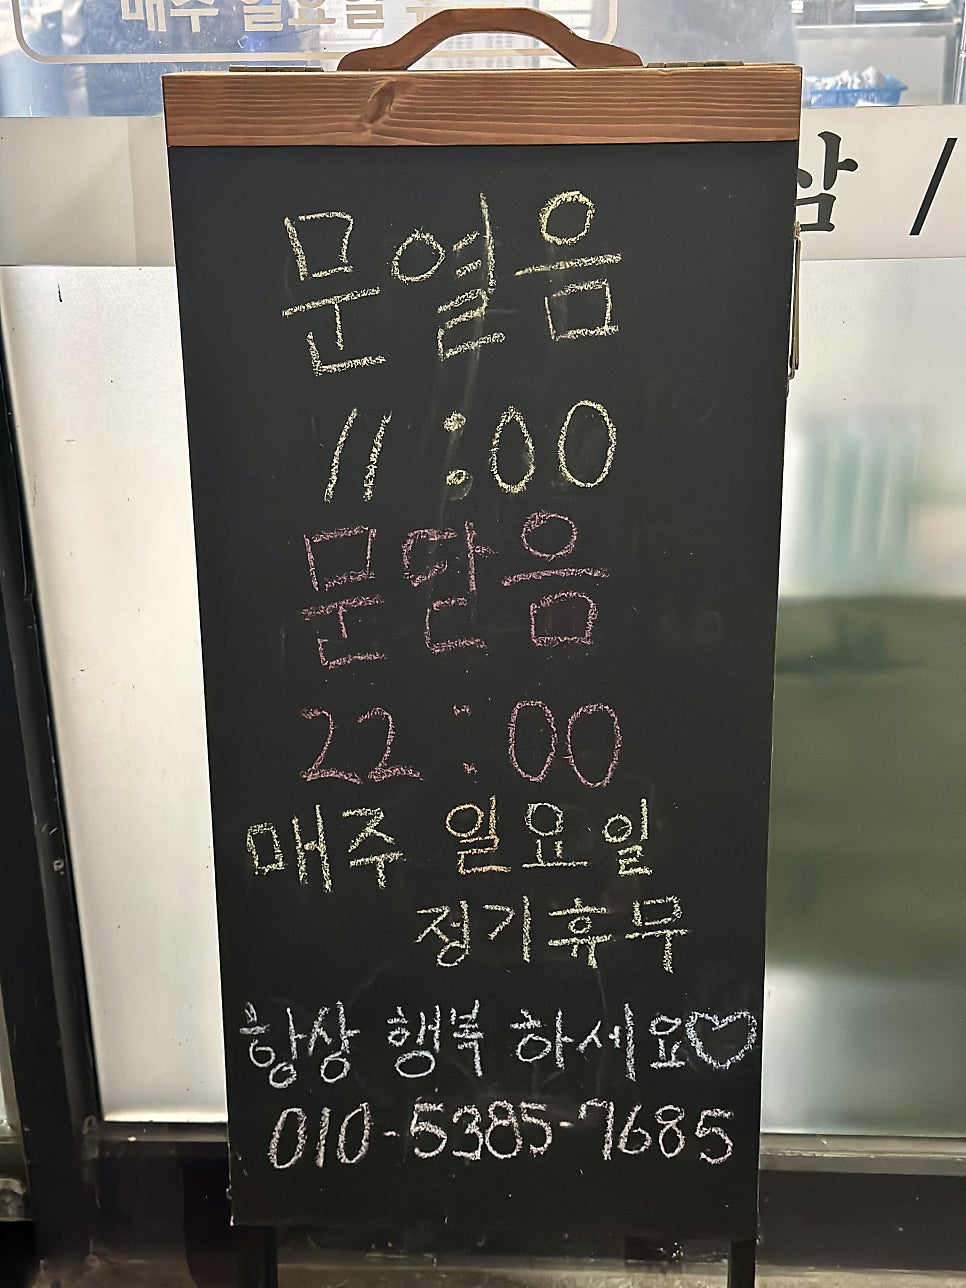 매주 일요일
삼 /
문열음
11:00
문닫음
22:00
매주 일요일
정기휴무
항상 행복 하세요♡
010-5385-7685